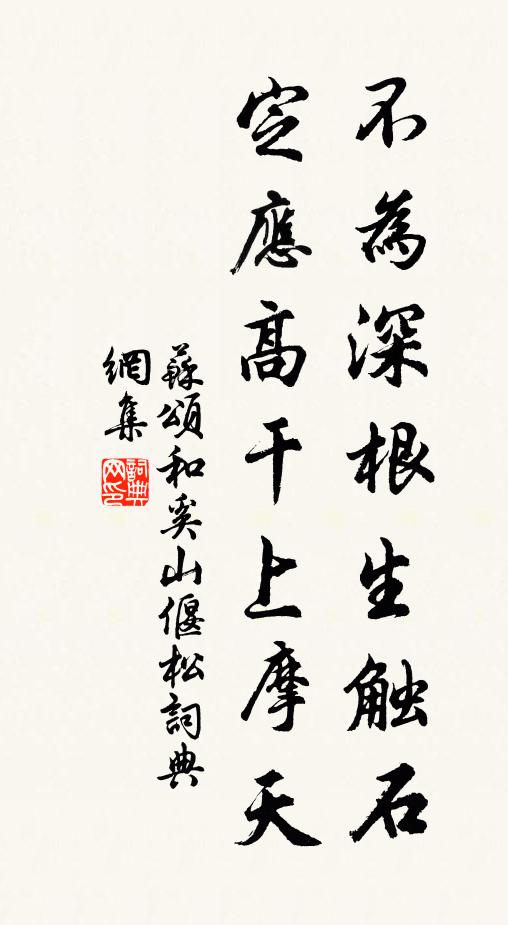 不為深根生触石
定應高干上摩天
蘇頌和奚山偃松詞典
網集
詞典
网印